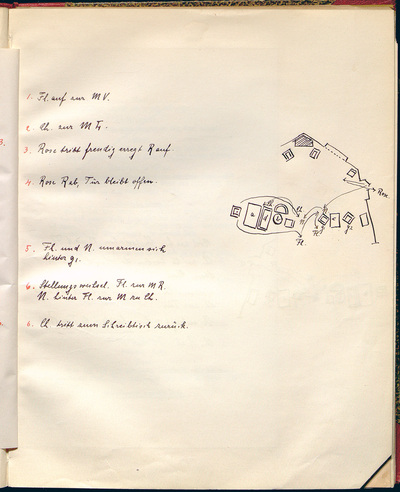 1. Fl. auf zur M V.
2. Ch. zur M
3. Rose tritt freudig erregt R auf.
4. Rose R ab, Tür bleibt offen.
Rose
Ch
Fl.
5. Fl. und N. umarmen sich
hinter g1.
6. Stellungswechsel. Fl. zur M R.
N. hinter Fl. zur M zu Ch.
6. Ch. tritt zum Schreibtisch zurück.
3.